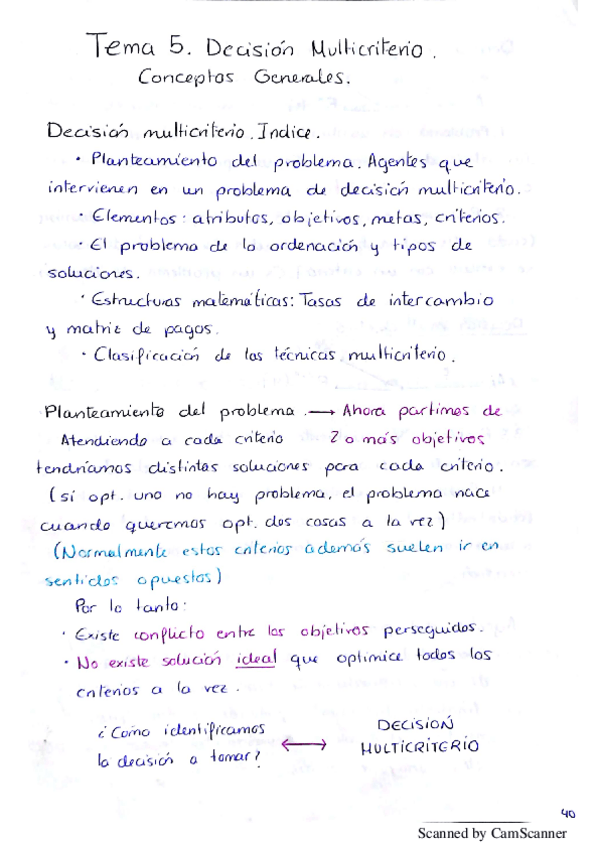 Tema 5. Decisión Multicriterio.
Conceptos Generales.
Decisión multicriterio. Indice.
· Planteamiento del problema. Agentes que
intervienen en un problema de decisión multicriterio.
· Elementos: atributos, objetivos, metas, criterios.
· El problema de la ordenación y tipos de
soluciones.
· Estructuras matemáticas: Tasas de intercambio
y matriz de pagos.
· Clasificación de las técnicas multicriterio.
Planteamiento del problema. → Ahora partimos de
Atendiendo a cada criterio 2 o más objetivos
tendríamos distintas soluciones para cada criterio.
(si opt. uno no hay problema, el problema nace
cuando queremos opt. dos cosas a la vez)
(Normalmente estos criterios además suelen ir en
sentidos opuestos)
Por lo tanto:
· Existe conflicto entre los objetivos perseguidos.
· No existe solución ideal que optimice todos los
criterios a la vez.
¿Cómo identificamos
la decisión a tomar? ↔ DECISIÓN
MULTICRITERIO
40
Scanned by CamScanner